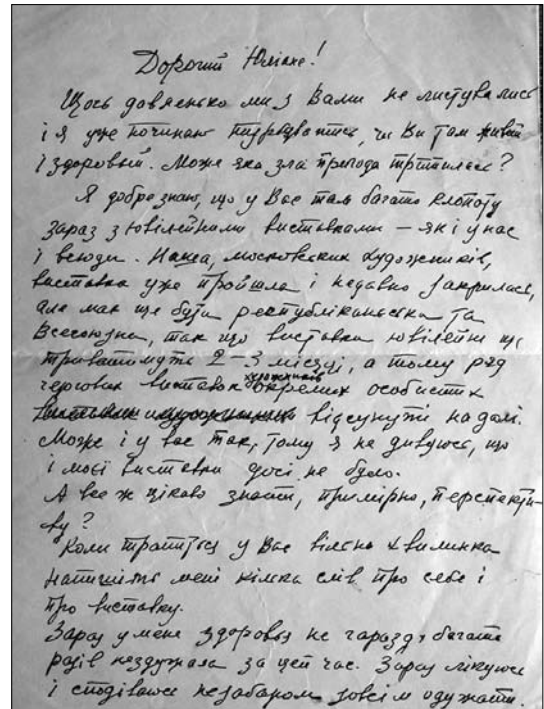 Дорогий Юліане!
Щось давненько ми з Вами не листувались
і я уже починаю турбуватись, чи Ви там живий
і здоровий. Може яка зла пригода трапилась?
Я добре знаю, що у Вас там багато клопоту
зараз з ювілейними виставками – як і у нас
і всюди. Наша, московських художників,
виставка уже пройшла і недавно закрилась,
але має ще бути республіканська та
Всесоюзна, так що виставки ювілейні ще
триватимуть 2–3 місяці, а тому ряд
чергових виставок окремих особистих
художників
відсунуті надалі.
Може і у вас так, тому я не дивуюсь, що
і моєї виставки досі не було.
А все ж цікаво знати, примірно, перспекти-
ву?
Коли трапиться у Вас вільна хвилинка
напишіть мені кілька слів про себе і
про виставку.
Зараз у мене здоровья не гаразд, багато
разів нездужала за цей час. Зараз лікуюсь
і сподіваюсь незабаром зовсім одужати.